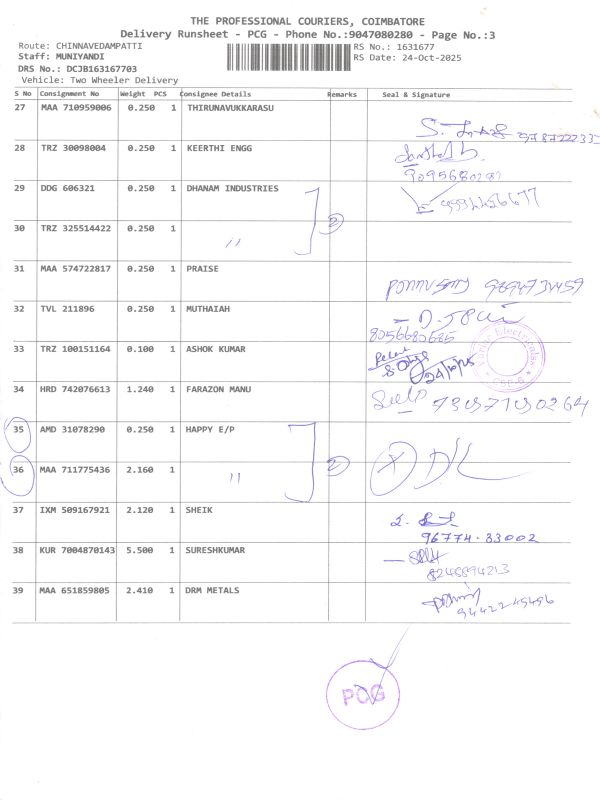 THE PROFESSIONAL COURIERS, COIMBATORE
Delivery Runsheet - PCG - Phone No.:9047080280 - Page No.:3
Route: CHINNAVEDAMPATTI RS No.: 1631677
Staff: MUNIYANDI RS Date: 24-Oct-2025
DRS No.: DCJB163167703
Vehicle: Two Wheeler Delivery
S No Consignment No Weight PCS Consignee Details Remarks Seal & Signature
27 MAA 710959006 0.250 1 THIRUNAVUKKARASU
28 TRZ 30098004 0.250 1 KEERTHI ENGG
29 DDG 606321 0.250 1 DHANAM INDUSTRIES
2
30 TRZ 325514422 0.250 1 〃
31 MAA 574722817 0.250 1 PRAISE
32 TVL 211896 0.250 1 MUTHAIAH
8056680685
33 TRZ 100151164 0.100 1 ASHOK KUMAR
24/10/25
34 HRD 742076613 1.240 1 FARAZON MANU
35 AMD 31078290 0.250 1 HAPPY E/P
2 X D/L
36 MAA 711775436 2.160 1 〃
37 IXM 509167921 2.120 1 SHEIK
96774-83002
38 KUR 7004870143 5.500 1 SURESHKUMAR
8248894213
39 MAA 651859805 2.410 1 DRM METALS
PCG